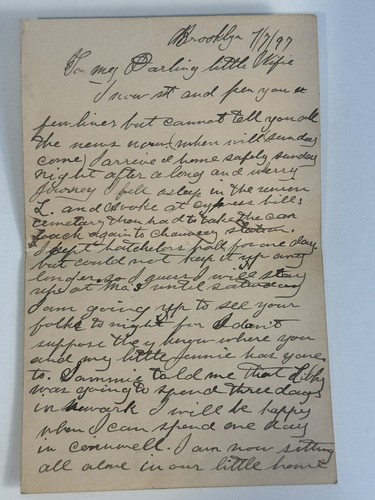 Brooklyn 7/7/97
To my Darling little Wifie
I now sit and pen you a
few lines but cannot tell you all
the news now (when will sunday
come) I arrived home safely sunday
night after a long and werry
journey I fell asleep in the union
L. and awoke at cypress hills
cemetary then had to take the car
back again to Chauncey station.
I kept batchelors hall for one day
but could not keep it up any
longer, so I guess I will stay
up at Ma's until saturday
I am going up to see your
folks to night for I don't
suppose they know where you
and my little Jennie has gone
to. Sammie told me that Libby
was going to spend three days
in newark I will be happy
when I can spend one day
in cornwell. I am now sitting
all alone in our little home